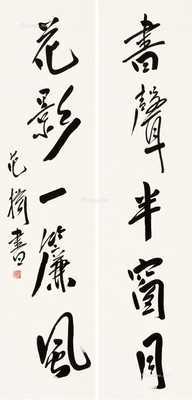 書聲半窗月
花影一簾風
范楨書